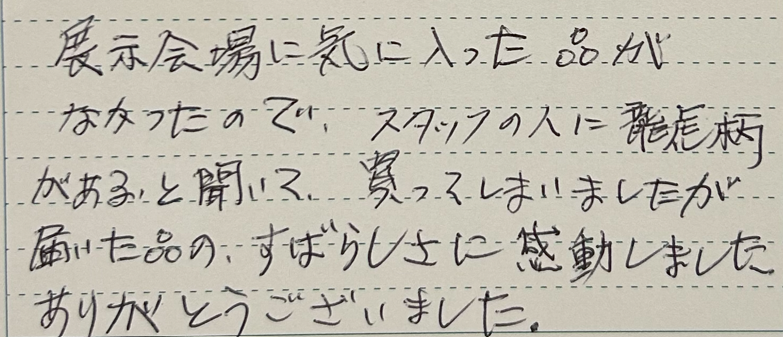 展示会場に気に入った品が
なかったので、スタッフの人に龍虎柄
があると聞いて、買ってしまいましたが
届いた品の、すばらしさに感動しました
ありがとうございました。